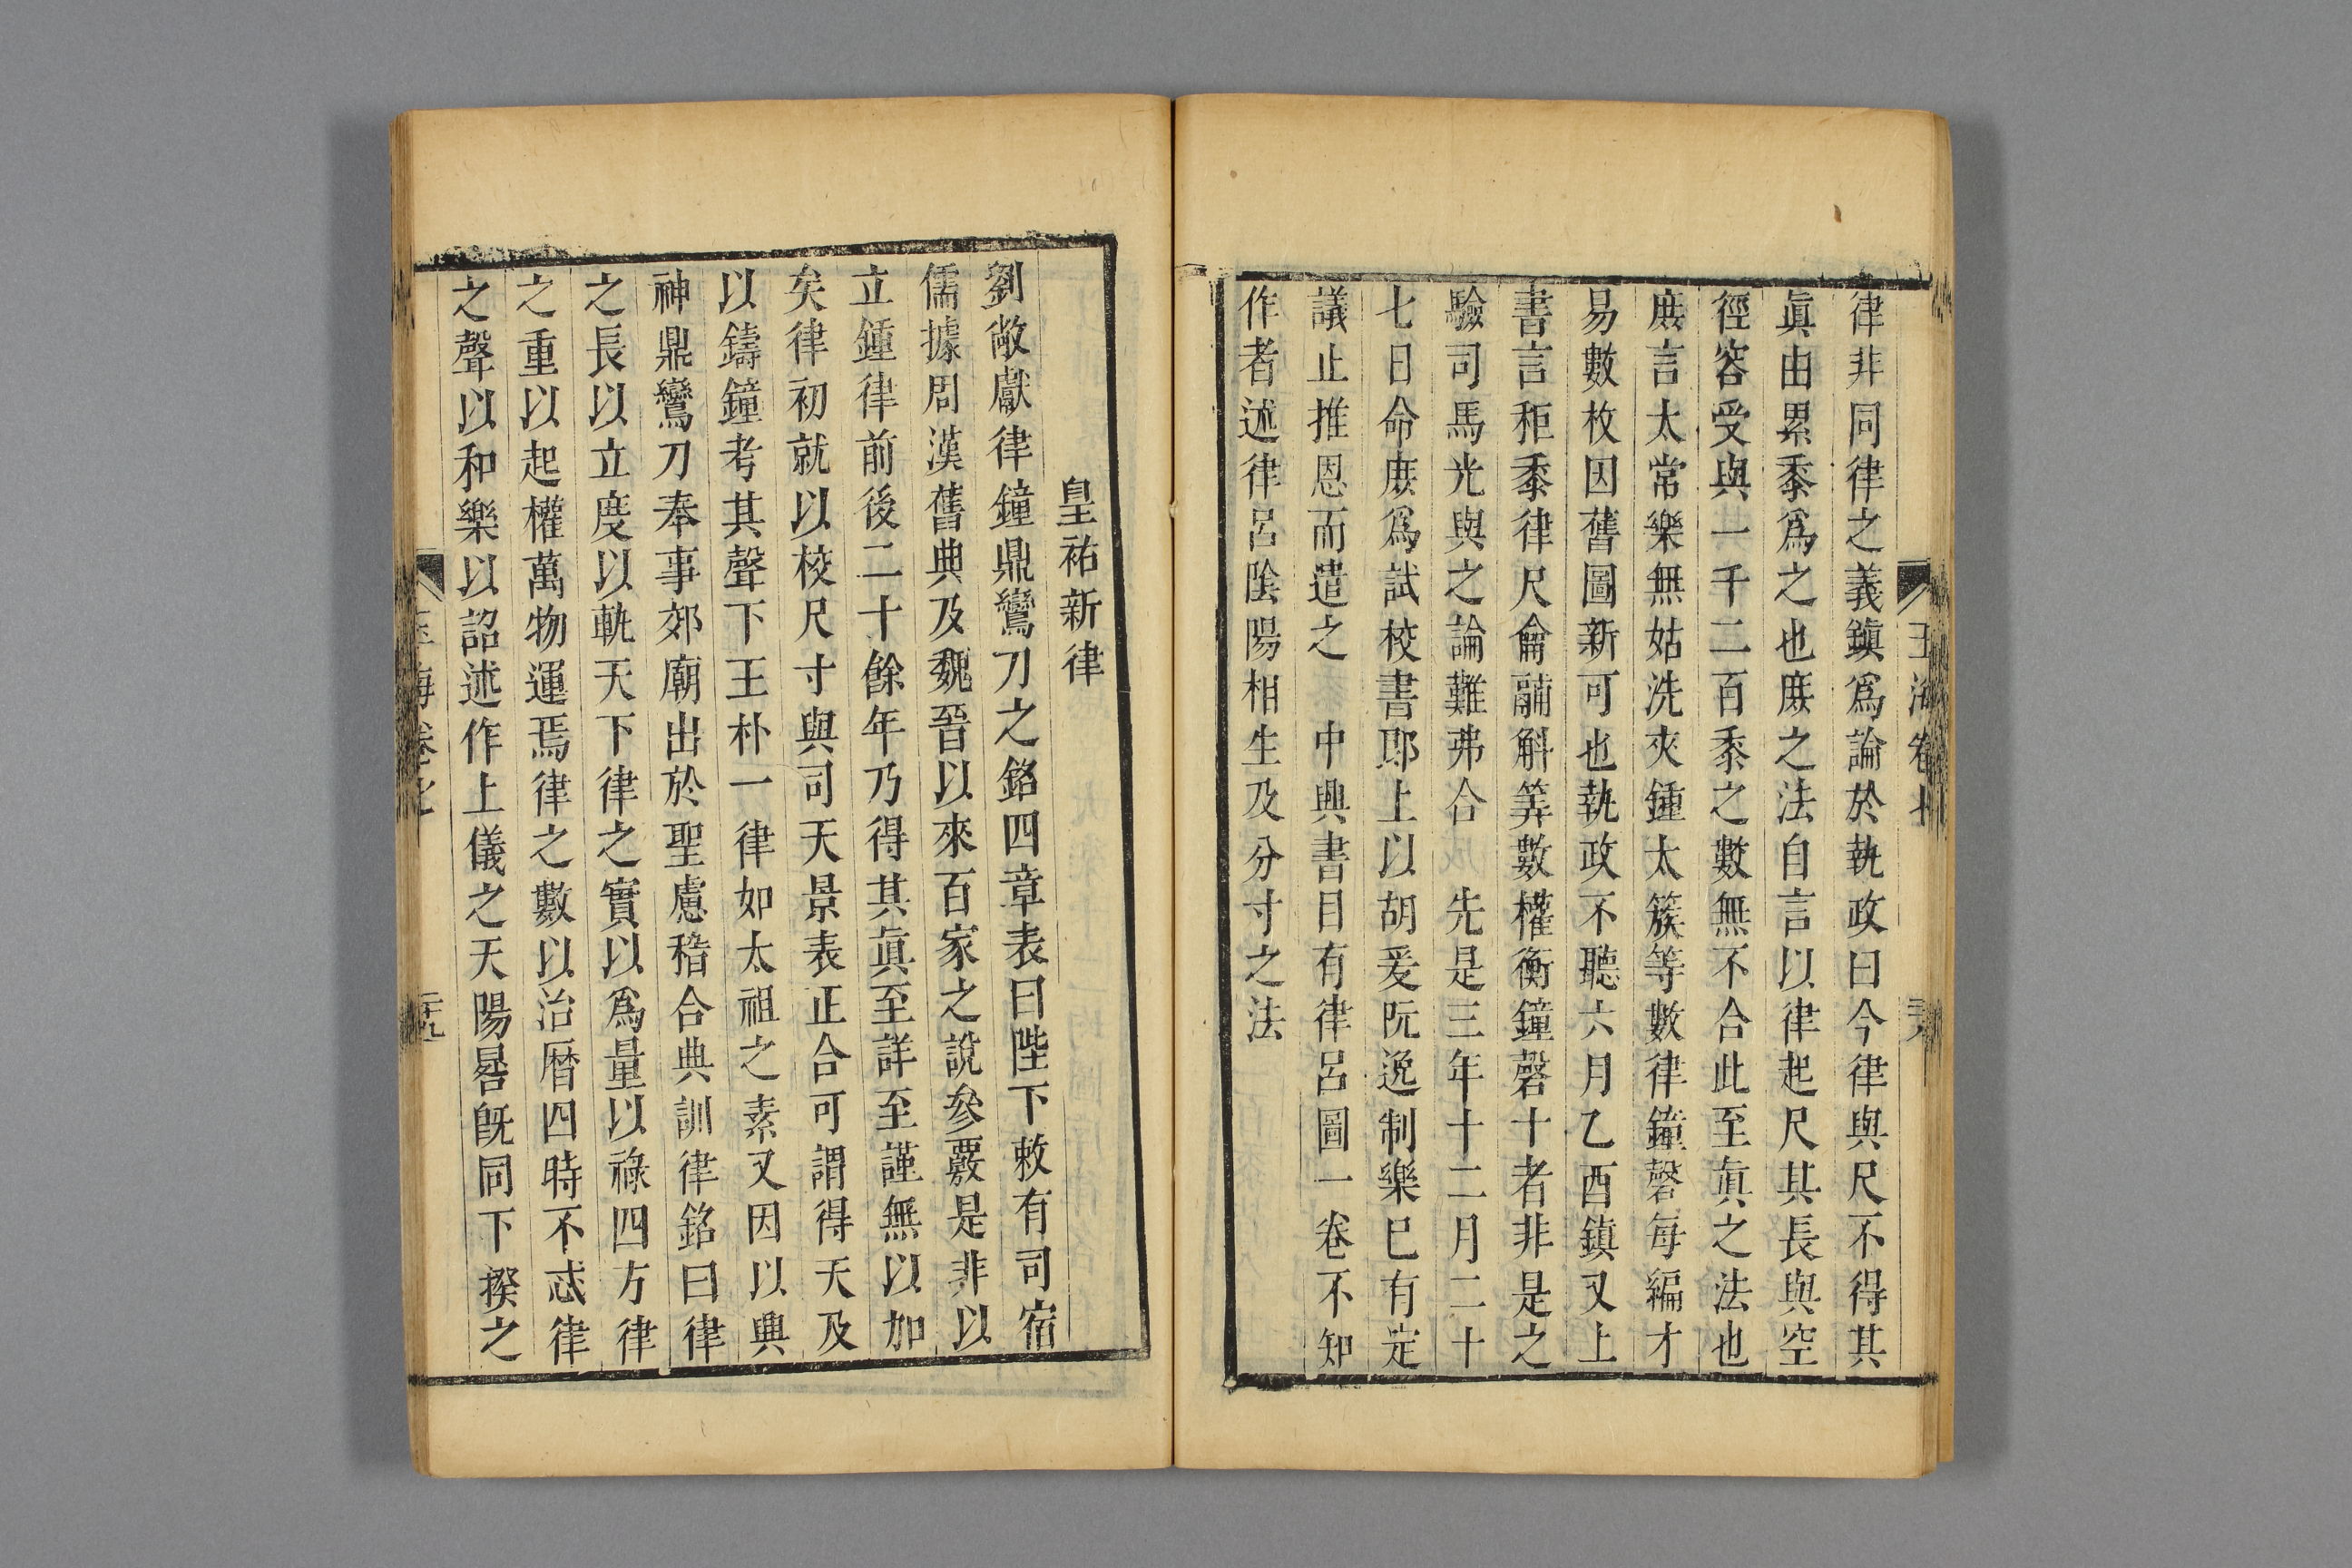 律非同律之義鎭爲論於執政曰今律與尺不得其
眞由累黍爲之也庻之法自言以律起尺其長與空
徑容受與一千二百黍之數無不合此至眞之法也
庻言太常樂無姑洗夾鍾太簇等數律鐘磬每編才
易數枚因舊圖新可也執政不聽六月乙酉鎭又上
書言秬黍律尺龠鬴斛筭數權衡鐘磬十者非是之
驗司馬光與之論難弗合 先是三年十二月二十
七日命庻爲試校書郎上以胡爰阮逸制樂巳有定
議止推恩而遣之 中興書目有律呂圖一卷不知
作者述律呂隂陽相生及分寸之法
玉海卷七
二十八
皇祐新律
劉敞獻律鐘鼎鸞刀之銘四章表曰陛下敕有司宿
儒據周漢舊典及魏晉以來百家之說參覈是非以
立鍾律前後二十餘年乃得其眞至詳至謹無以加
矣律初就以校尺寸與司天景表正合可謂得天及
以鑄鐘考其聲下王朴一律如太祖之素又因以與
神鼎鸞刀奉事郊廟出於聖慮稽合典訓律銘曰律
之長以立度以軌天下律之實以爲量以祿四方律
之重以起權萬物運焉律之數以治曆四時不忒律
之聲以和樂以詔述作上儀之天陽晷旣同下揆之
玉海卷七
二十九